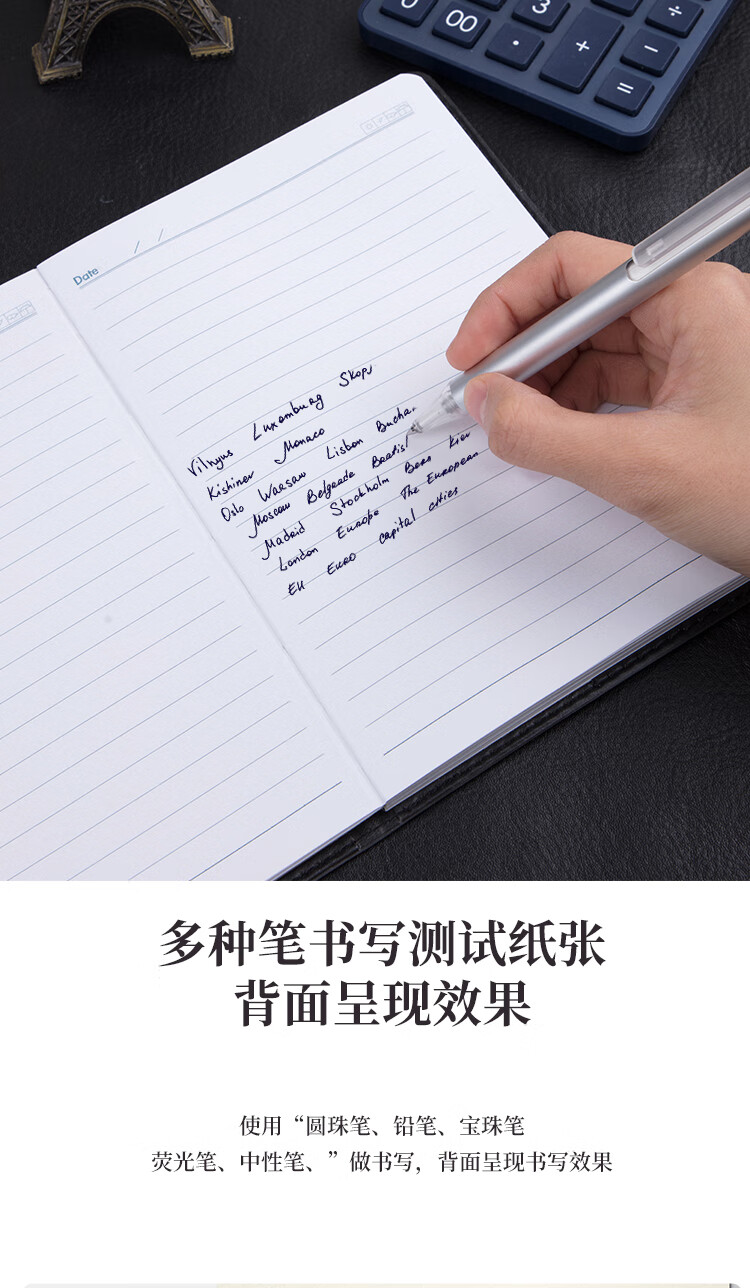 0 00 3 ÷
· + −
=
Date / /
Vilnyus Luxemburg Skopj
Kishinev Monaco
Oslo Warsaw Lisbon Bucha
Moscow Belgrade Bratisl
Madrid Stockholm Bern Kiev
London Europe The European
EU Euro capital cities
多种笔书写测试纸张
背面呈现效果
使用“圆珠笔、铅笔、宝珠笔
荧光笔、中性笔、”做书写，背面呈现书写效果